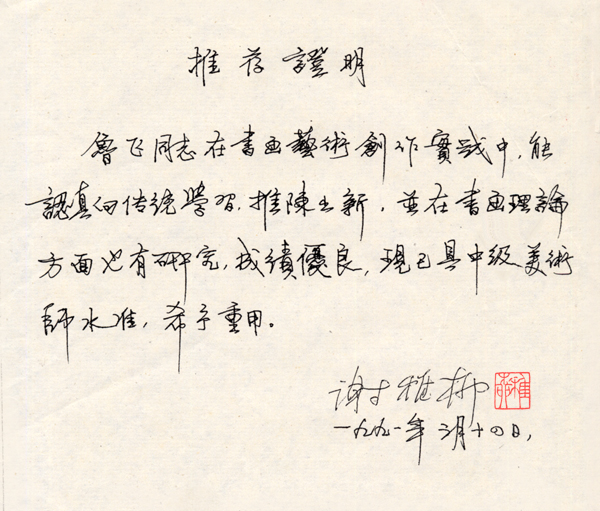 推荐證明
魯飞同志在书画藝術創作實践中，能
認真向传统學習，推陳出新，並在书画理論
方面也有研究，成績優良，現已具中级美術
師水准，希予重用。
谢稚柳
稚柳
一九九一年三月十四日，